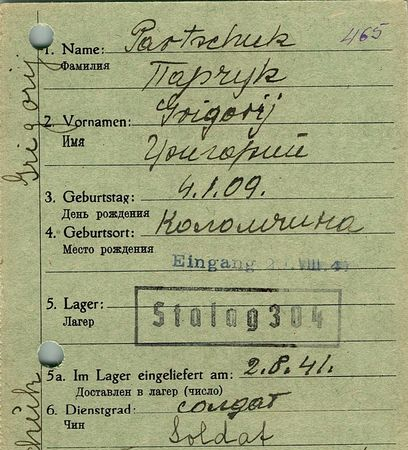 465
1. Name: Partschuk
Фамилия Парчук
2. Vornamen: Grigorij
Имя Григорий
3. Geburtstag: 4.1.09.
День рождения
4. Geburtsort: Коломчина
Место рождения
Eingang VIII. 4
5. Lager: Stalag 304
Лагер
5a. Im Lager eingeliefert am: 2.8.41.
Доставлен в лагер (число)
6. Dienstgrad: солдат
Чин Soldat
Grigorij